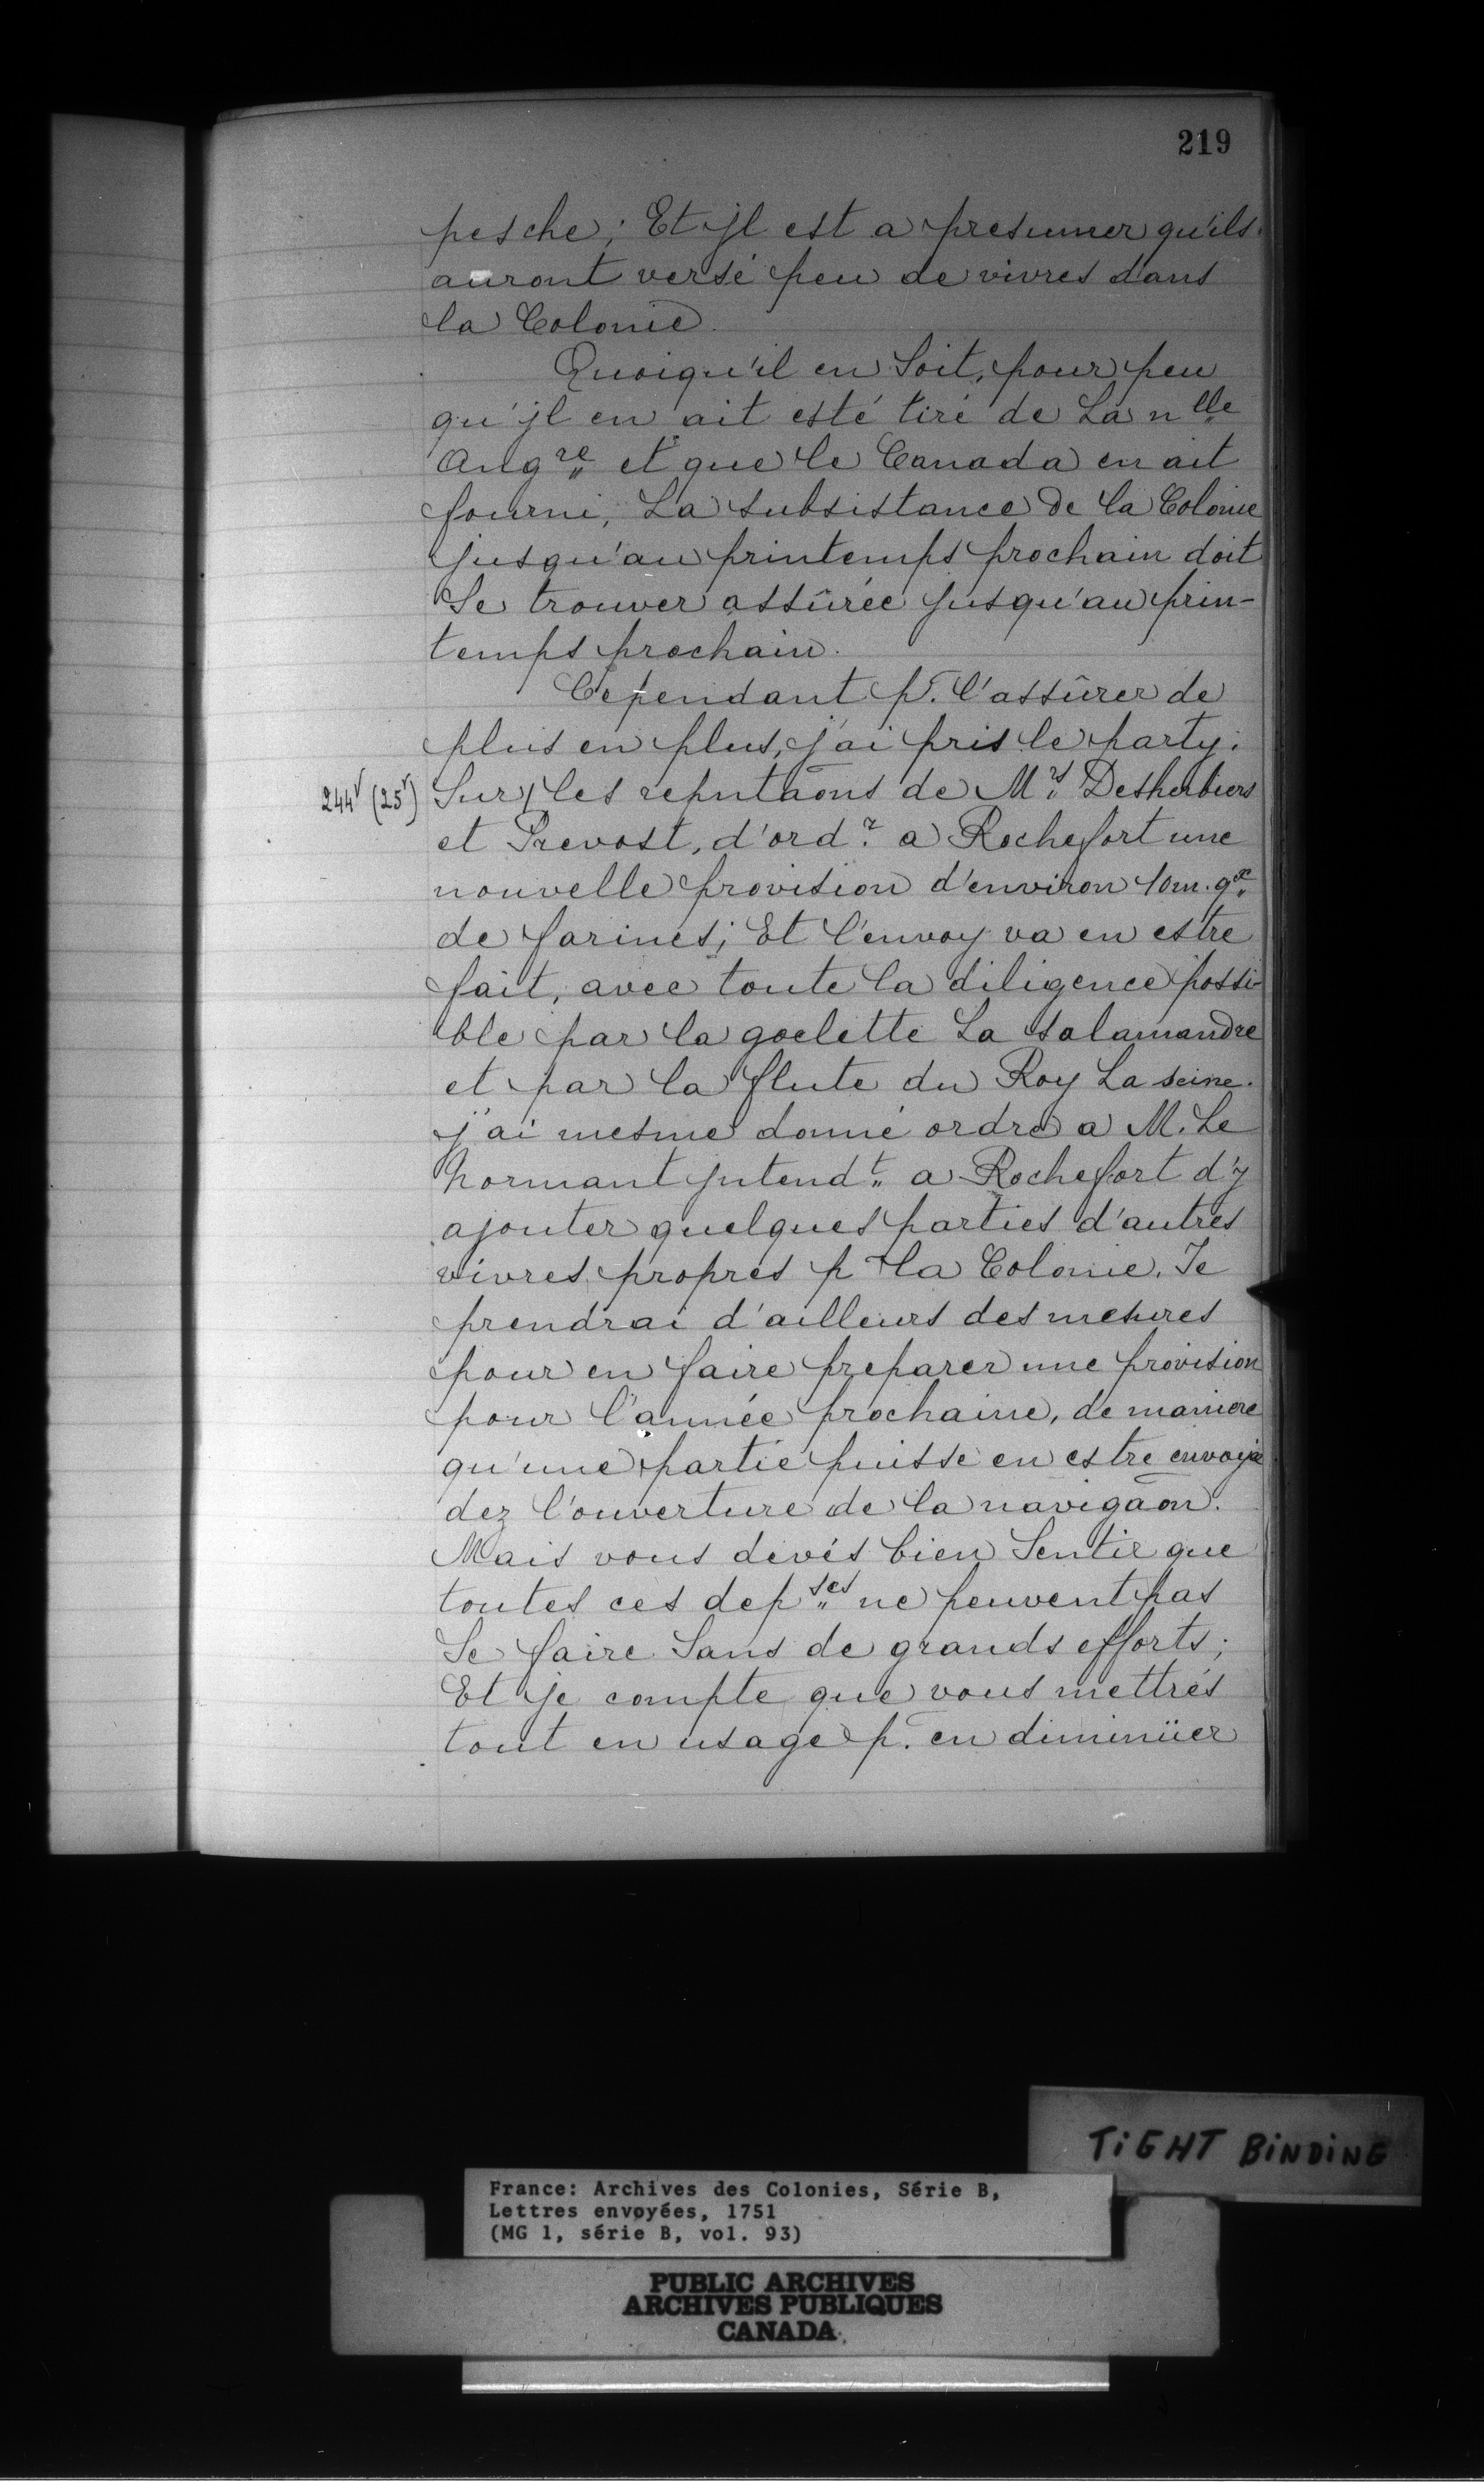 219
pesche; Et jl est a presumer qu'ils
auront versé peu de vivres dans
la Colonie.
Quoiqu'il en Soit, pour peu
qu'jl en ait esté tiré de La nlle
Angre et que le Canada en ait
fourni, La subsistance de la Colonie
jusqu'au printemps prochain doit
Se trouver assûrée jusqu'au prin-
temps prochain.
Cependant pr. l'assûrer de
plus en plus, j'ai pris le party.
244v (25v) Sur les reputaõns de Mrs Desherbiers
et Prevost, d'ordr a Rochefort une
nouvelle provision d'environ 10m. qx
de farines; Et l'envoy va en estre
fait, avec toute la diligence possi-
ble par la goelette La Salamandre
et par la flute du Roy La seine.
j'ai mesme donné ordre a M. Le
Normant jntendt a Rochefort d'y
ajouter quelques parties d'autres
vivres propres pr la Colonie. Je
prendrai d'ailleurs des mesures
pour en faire preparer une provision
pour l'année prochaine, de maniere
qu'une partie puisse en estre envoyée
dez l'ouverture de la navigaõn.
Mais vous devés bien Sentir que
toutes ces depses ne peuvent pas
Se faire Sans de grands efforts;
Et je compte que vous mettrés
tout en usage pr. en diminüer
TIGHT BINDING
France: Archives des Colonies, Série B,
Lettres envoyées, 1751
(MG 1, série B, vol. 93)
PUBLIC ARCHIVES
ARCHIVES PUBLIQUES
CANADA